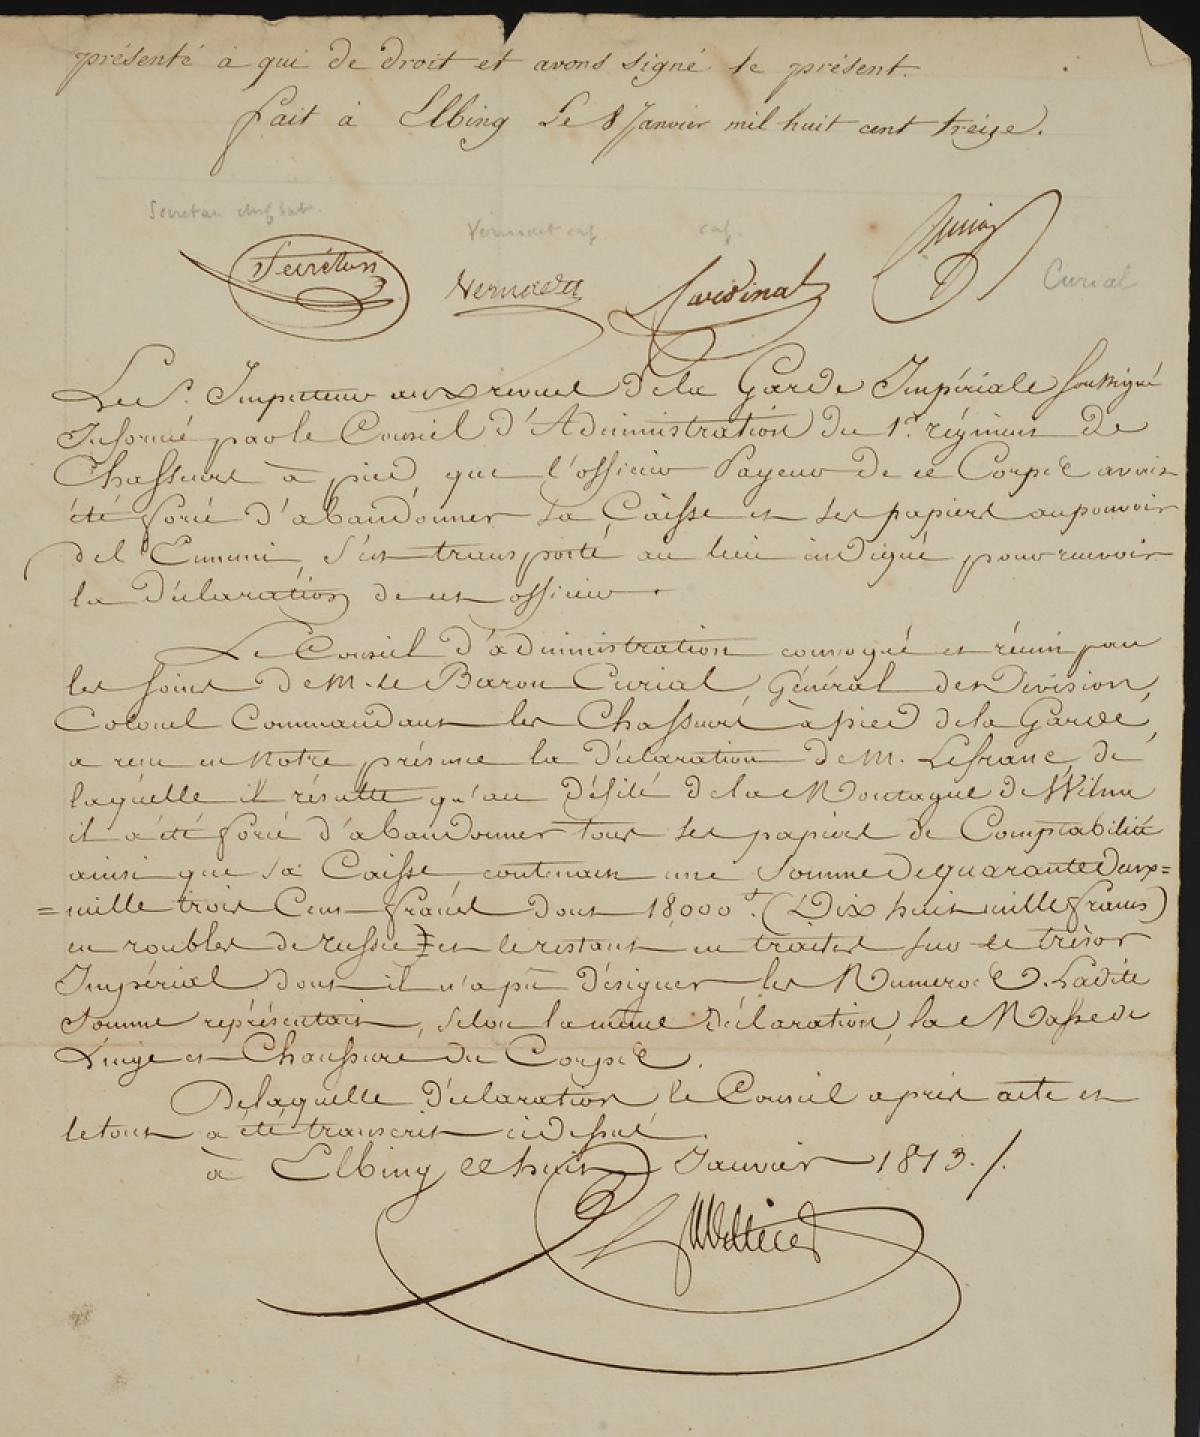 présenté à qui de droit et avons signé le présent.
fait à Elbing Le 8 Janvier mil huit cent treize.
Secretan chef bat.
cap.
Secrétan
Cardinal
Curial
Le Sr. Inspecteur aux revues de la Garde Impériale soussigné
Informé par le Conseil d'Administration du 1er. régiment de
Chasseurs à pied que l'officier Payeur de ce Corps avait
été forcé d'abandonner sa Caisse et ses papiers au pouvoir
de l'Ennemi, s'est transporté au lieu indiqué pour recevoir
la Déclaration de cet officier.
Le Conseil d'administration convoqué et réuni par
les soins de M. le Baron Curial, Général de Division,
Colonel Commandant les Chasseurs à pied de la Garde,
a reçu en Notre présence la déclaration de M. Lefranc, de
laquelle il résulte qu'au Défilé de la Montagne de Wilna
il a été forcé d'abandonner tous ses papiers de Comptabilité
ainsi que sa Caisse, contenant une somme de quarante deux=
=mille trois Cens francs dont 18,000 f. (Dix huit mille francs)
en roubles de russie et le restant en traites sur le trésor
Impérial dont il n'a pû désigner les Numeros. Ladite
Somme représentait, selon la même déclaration, la Masse de
Linge et Chaussure du Corps.
De laquelle déclaration le Conseil a pris acte et
le tout a été transcrit ci dessus.
à Elbing le huit Janvier 1813./.